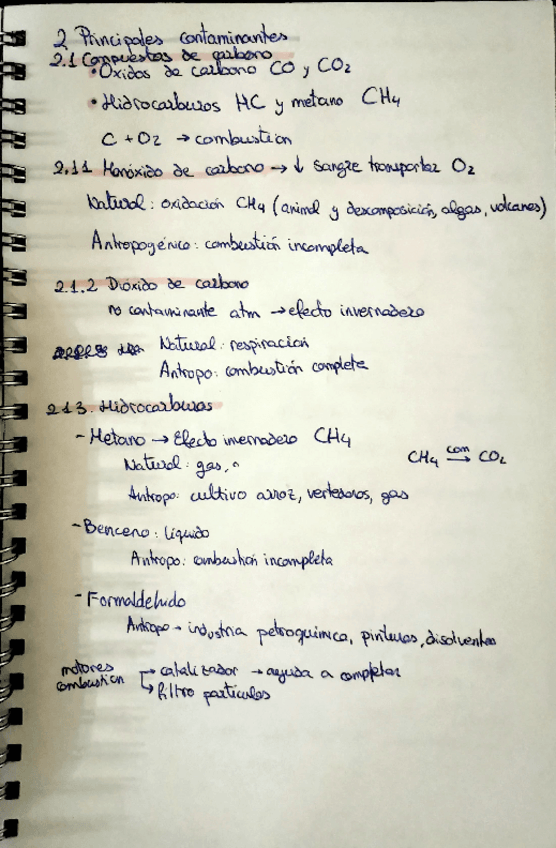 2 Principales contaminantes
2.1 Compuestos de carbono
• Oxidos de carbono CO y CO2
• Hidrocarburos HC y metano CH4
C + O2 → combustion
2.1.1 Monóxido de carbono → ↓ sangre transportar O2
Natural: oxidación CH4 (animal y descomposición, algas, volcanes)
Antropogénico: combustión incompleta
2.1.2 Dióxido de carbono
no contaminante atm → efecto invernadero
Natural: respiración
Antropo: combustión completa
2.1.3. Hidrocarburos
- Metano → Efecto invernadero CH4
Natural: gas,
CH4 com→ CO2
Antropo: cultivo arroz, vertederos, gas
- Benceno: líquido
Antropo: combustión incompleta
- Formaldehido
Antropo → industria petroquímica, pinturas, disolventes
motores combustion → catalizador → ayuda a completar
↳ filtro particulas